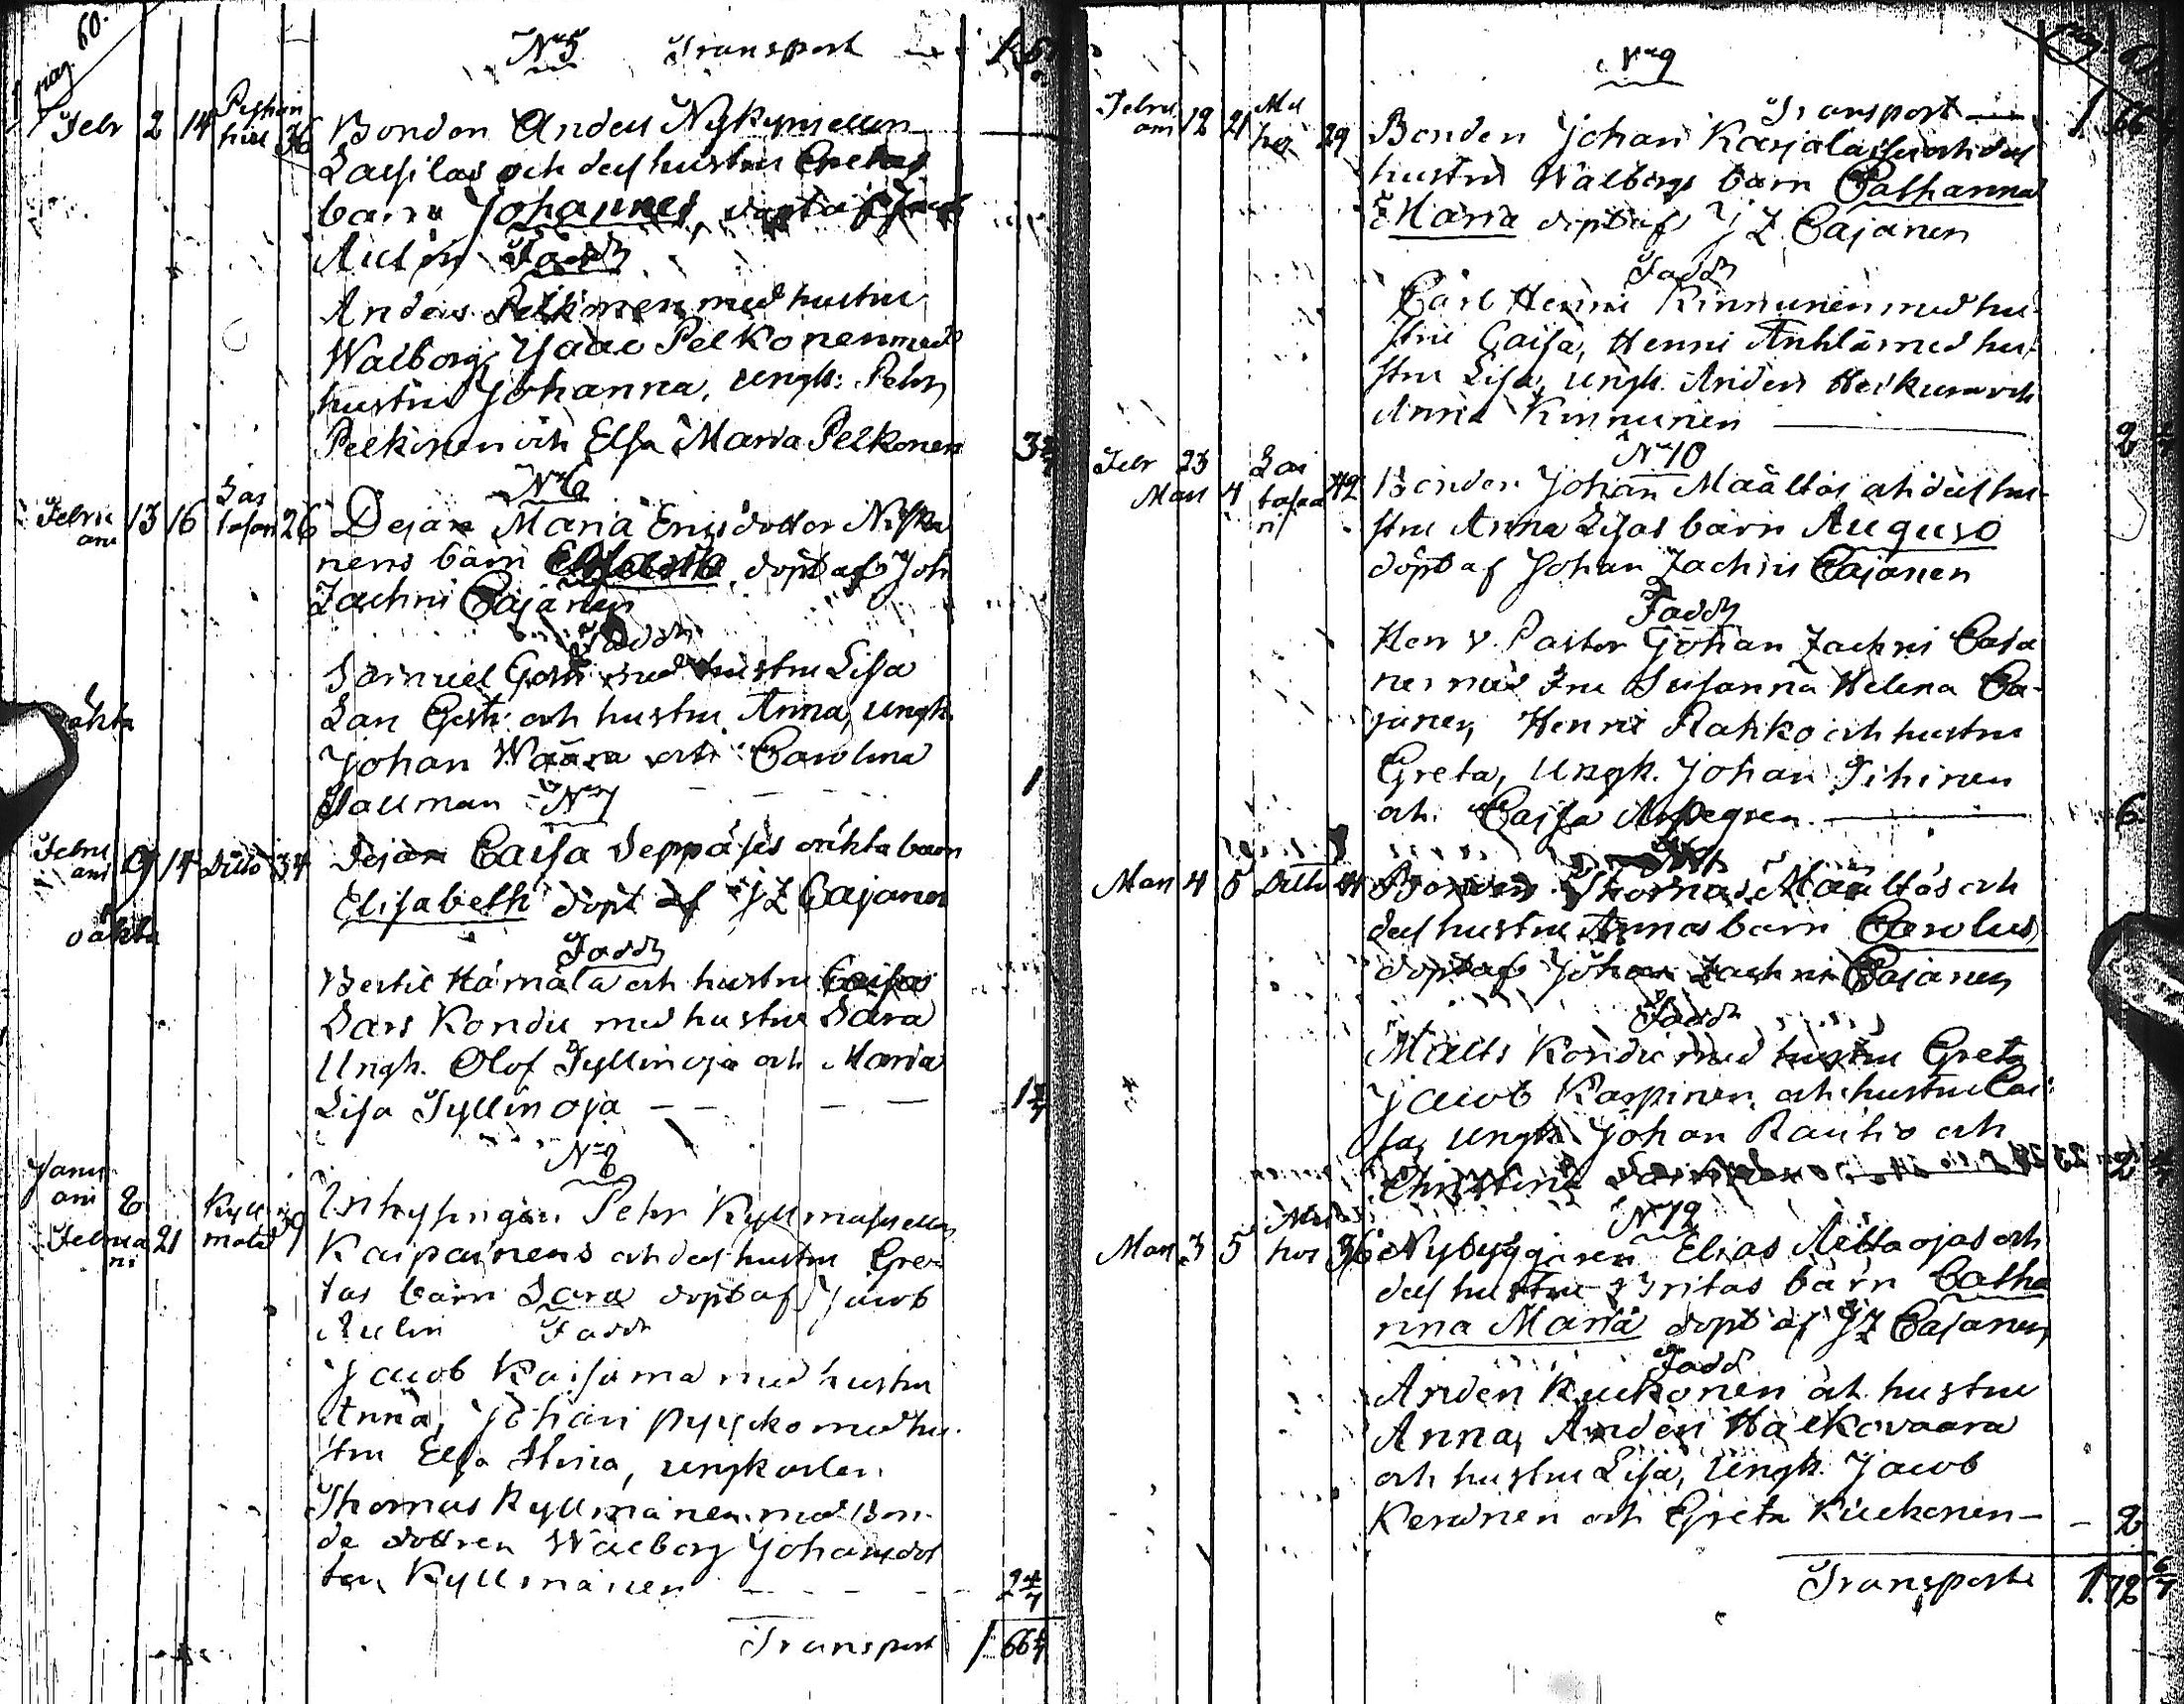 pag. 60.
No 5 Transport
Febr 2 14 36 Bonden Anders Nykyri ellen
Lassilas och dess hustru Gretas
barn Johannes, döpt af Jacob
Aulin Fadd
Anders Pelkonen med hustru
Walborg, Isaac Pelkonen med
hustru Johanna, Ungk: Pehr
Pelkonen och Elsa Maria Pelkonen
No 6
Febru
arii 13 16 26 Dejan Maria Ericsdotter Niska
nens barn Elisabetha, döpt af Joh
Zachris Cajanen
Fadd
Samuel Gestr med hustru Lisa
Lars Gestr och hustru Anna, Ungk.
Johan Waara och Carolina
Hallman 1
No 7
Febru
arii 9 14 Ditto 34 Dejan Caisa Seppäses oächta barn
Elisabeth döpt af J Z Cajanen
oächta
Fadd
Bertil Hämälä och hustru Caisa
Lars Kondu med hustru Sara
Ungk. Olof Tyllinoja och Maria
Lisa Tyllinoja
No 8
Janu
arii 8
Februa 21 Kyll
rii mälä 39 Inhysingen Pehr Kyllmäs ellen
Kaipainens och dess hustru Gre
tas barn Sara döpt af Jacob
Aulin Fadd
Jacob Kaisama med hustru
Anna, Johan Pyycko med hu
stru Elsa Stina, ungkarlen
Thomas Kyllmänen med Bon
de dottren Walborg Johansdot
ter Kyllmänen 2 4/7
Transport 1 66 4/7
pag. 61
No 9
Transport 1. 66
Febru
arii 12 21 29 Bonden Johan Karjalaisen och dess
hustru Walborgs barn Catharina
Maria döpt af J Z Cajanen
Fadd
Carl Henric Kinnunen med hu
stru Caisa, Henric Anttila med hu
stru Lisa, Ungk. Anders Heikura och
Anna Kinnunen 2
No 10
Febr 23
Mart 4 42 Bonden Johan Määttäs och dess hu
stru Anna Lisas barn August
döpt af Johan Zachris Cajanen
Fadd
Herr v. Pastor Johan Zachris Caja
nen med Fru Susanna Helena Ca
janen, Henric Rahko och hustru
Greta, Ungk. Johan Tihinen
och Caisa Aspegren. 6
Mart 4 5 Ditto Bonden Thomas Määttäs och
dess hustru Annas barn Carolus
döpt af Johan Zachris Cajanen
Fadd
Matts Kondu med hustru Greta
Jacob Karpinen och hustru Cai
sa, Ungk. Johan Rautio och
Christina
No 12
Mart 3 5 36 Nybyggaren Elias Ättäojas och
dess hustru Britas barn Catha
rina Maria döpt af J Z Cajanen
Fadd
Anders Kuckonen och hustru
Anna, Anders Halkovaara
och hustru Lisa, Ungk. Jacob
Keränen och Greta Kuckonen - 2
Transport 1. 78 6/7